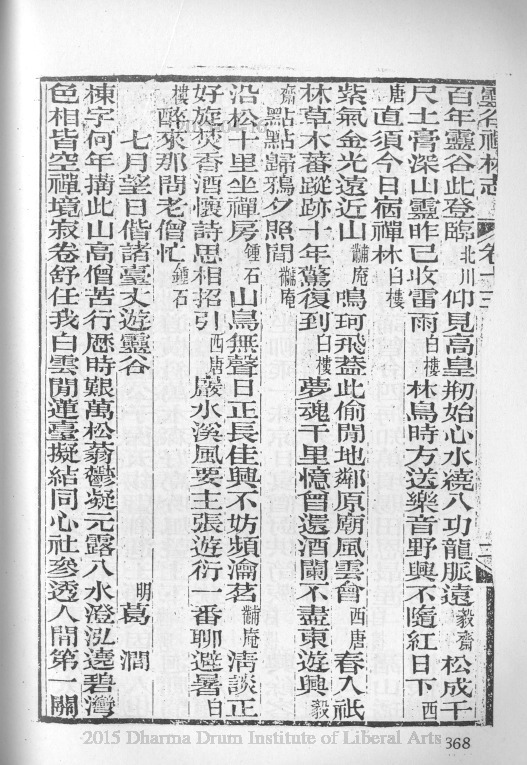 靈谷禪林志 卷十三 二
百年靈谷此登臨北川仰見高皇刱始心水繞八功龍脈遠毅齋松成千
尺土膏深山靈昨已收雷雨白樓林鳥時方送樂音野興不隨紅日下西
唐直須今日宿禪林白樓
紫氣金光遠近山黼庵鳴珂飛葢此偷閒地鄰原廟風雲會西唐春入祇
林草木蕃蹤跡十年驚復到白樓夢魂千里憶曾還酒闌不盡東遊興毅
齋點點歸鴉夕照閒黼庵
沿松十里坐禪房鍾石山鳥無聲日正長佳興不妨頻瀹茗黼庵淸談正
好旋焚香酒懷詩思相招引西唐巖水溪風要主張遊衍一番聊避暑白
樓醉來那問老僧忙鍾石
七月望日偕諸臺丈遊靈谷
明葛澗
棟宇何年搆此山高僧苦行歷時艱萬松蓊鬱凝元露八水澄泓遶碧灣
色相皆空禪境寂卷舒任我白雲閒蓮臺擬結同心社參透人閒第一關
2015 Dharma Drum Institute of Liberal Arts
368